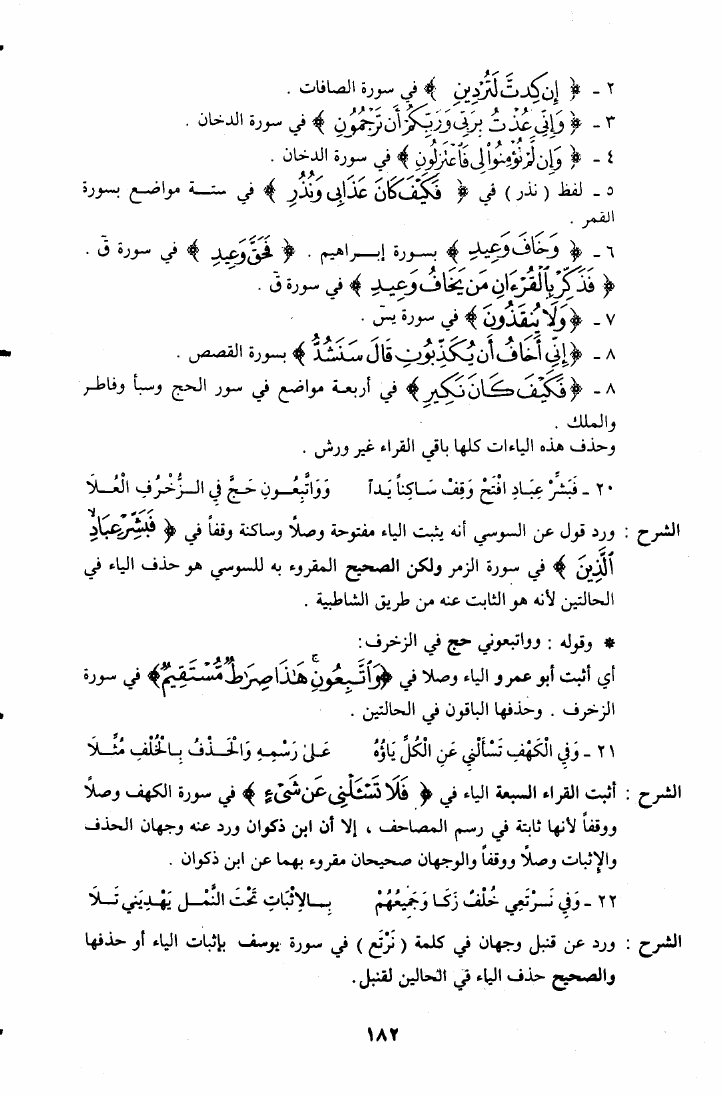 ٢ ـ ﴿ إِن كِدتَّ لَتُرْدِينِ ﴾ في سورة الصافات .
٣ ـ ﴿ وَإِنِّي عُذْتُ بِرَبِّي وَرَبِّكُمْ أَن تَرْجُمُونِ ﴾ في سورة الدخان .
٤ ـ ﴿ وَإِن لَّمْ تُؤْمِنُوا۟ لِي فَٱعْتَزِلُونِ ﴾ في سورة الدخان .
٥ ـ لفظ ( نذر ) في ﴿ فَكَيْفَ كَانَ عَذَابِي وَنُذُرِ ﴾ في ستة مواضع بسورة
القمر .
٦ ـ ﴿ وَخَافَ وَعِيدِ ﴾ بسورة إبراهيم . ﴿ فَحَقَّ وَعِيدِ ﴾ في سورة قۤ .
﴿ فَذَكِّرْ بِٱلْقُرْءَانِ مَن يَخَافُ وَعِيدِ ﴾ في سورة قۤ .
٧ ـ ﴿ وَلَا يُنقِذُونَ ﴾ في سورة يسۤ .
٨ ـ ﴿ إِنِّي أَخَافُ أَن يُكَذِّبُونِ قَالَ سَنَشُدُّ ﴾ بسورة القصص .
٨ ـ ﴿ فَكَيْفَ كَانَ نَكِيرِ ﴾ في أربعة مواضع في سور الحج وسبأ وفاطر
والملك .
وحذف هذه الياءات كلها باقي القراء غير ورش .
٢٠ ـ فَبَشِّرْ عِبَادِ افْتَحْ وَقِفْ سَاكِناً يَداً وَوَاتَّبِعُونِ حَجَّ فِي الزُّخْرُفِ الْعُلَا
الشرح : ورد قول عن السوسي أنه يثبت الياء مفتوحة وصلاً وساكنة وقفاً في ﴿ فَبَشِّرْ عِبَادِ
ٱلَّذِينَ ﴾ في سورة الزمر ولكن الصحيح المقروء به للسوسي هو حذف الياء في
الحالتين لأنه هو الثابت عنه من طريق الشاطبية .
* وقوله : وواتبعوني حج في الزخرف:
أي أثبت أبو عمرو الياء وصلا في ﴿وَٱتَّبِعُونِ ۚ هَٰذَا صِرَٰطٌ مُّسْتَقِيمٌ﴾ في سورة
الزخرف . وحذفها الباقون في الحالتين .
٢١ ـ وَفِي الْكَهْفِ تَسْأَلْنِي عَنِ الْكُلِّ يَاؤُهُ عَلَىٰ رَسْمِهِ وَالْحَذْفُ بِالْخُلْفِ مُثِّلَا
الشرح : أثبت القراء السبعة الياء في ﴿ فَلَا تَسْـَٔلْنِي عَن شَىْءٍ ﴾ في سورة الكهف وصلاً
ووقفاً لأنها ثابتة في رسم المصاحف ، إلا أن ابن ذكوان ورد عنه وجهان الحذف
والإثبات وصلاً ووقفاً والوجهان صحيحان مقروء بهما عن ابن ذكوان .
٢٢ ـ وَفِي نَرْتَعِي خُلْفٌ زَكَا وَجَمِيعُهُمْ بِالِاثْبَاتِ تَحْتَ النَّمْلِ يَهْدِيَنِي تَلَا
الشرح : ورد عن قنبل وجهان في كلمة ( نَرْتَعِ ) في سورة يوسف بإثبات الياء أو حذفها
والصحيح حذف الياء في الحالين لقنبل.
١٨٢